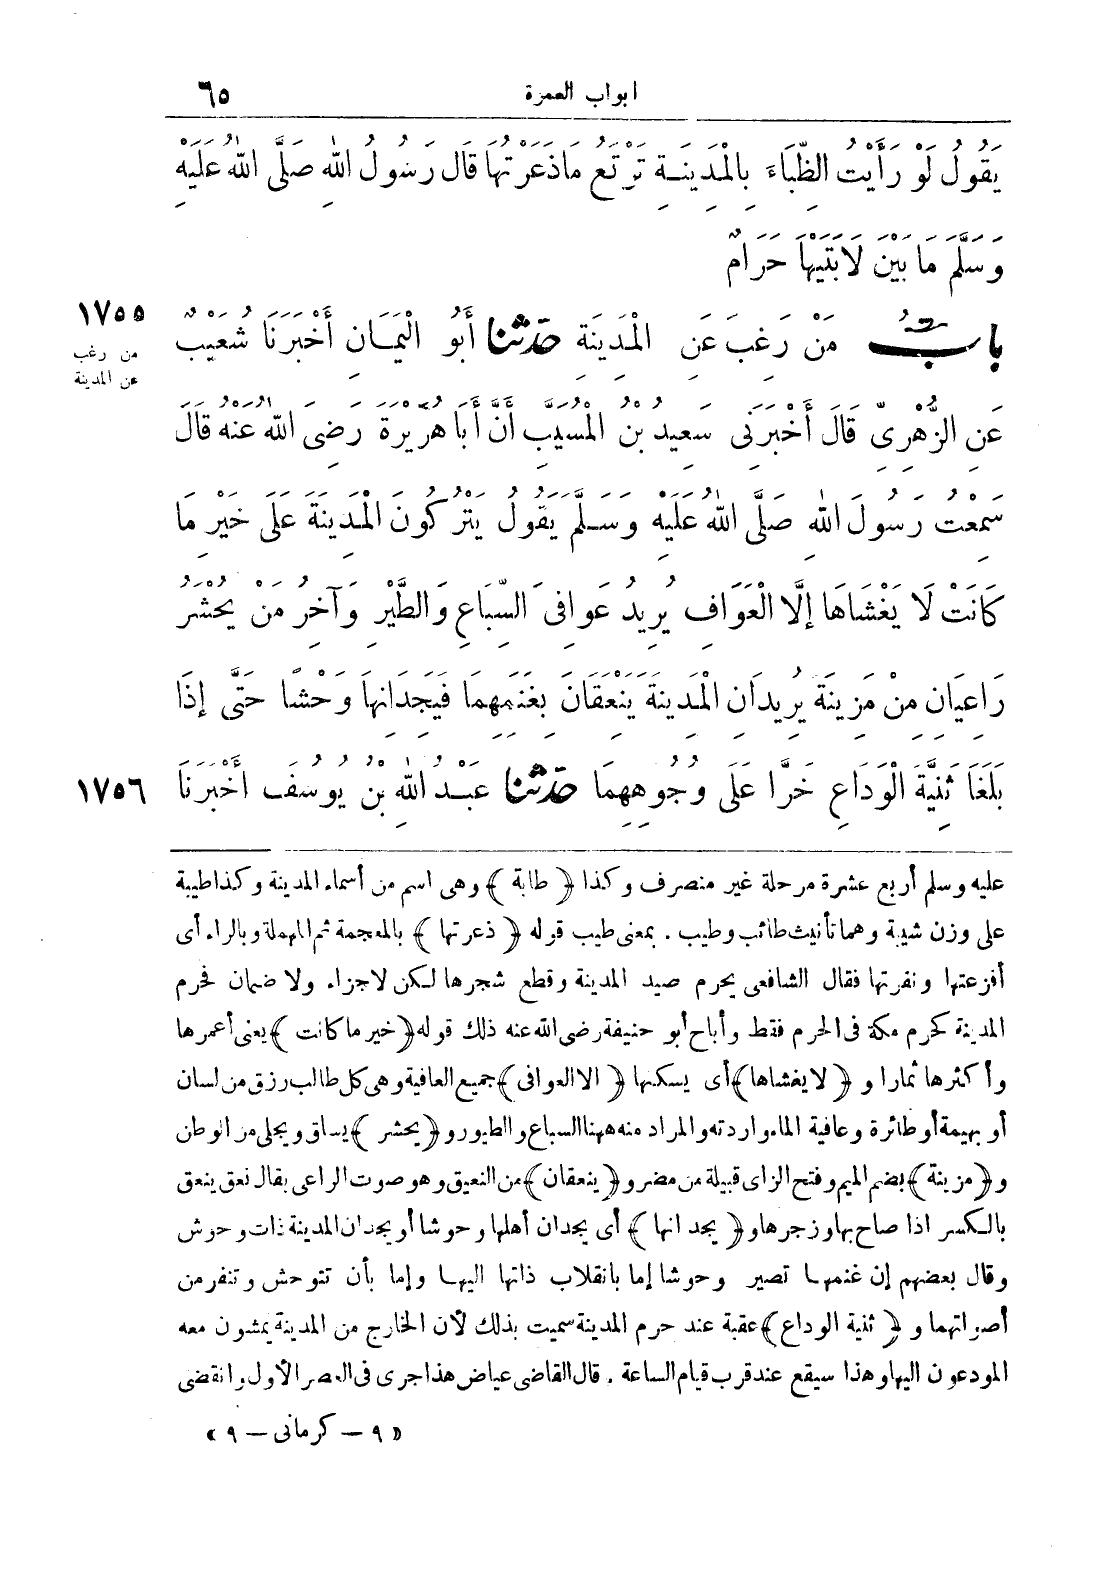 ابواب العمرة ٦٥
يَقُولُ لَوْ رَأَيْتُ الظِّبَاءَ بِالْمَدِينَةِ تَرْتَعُ مَا ذَعَرْتُهَا قَالَ رَسُولُ اللهِ صَلَّى اللهُ عَلَيْهِ
وَسَلَّمَ مَا بَيْنَ لَابَتَيْهَا حَرَامٌ
بابُ مَنْ رَغِبَ عَنِ الْمَدِينَةِ حَدَّثَنَا أَبُو الْيَمَانِ أَخْبَرَنَا شُعَيْبٌ
١٧٥٥
من رغب
عن المدينة
عَنِ الزُّهْرِيِّ قَالَ أَخْبَرَنِى سَعِيدُ بْنُ الْمُسَيَّبِ أَنَّ أَبَا هُرَيْرَةَ رَضِىَ اللهُ عَنْهُ قَالَ
سَمِعْتُ رَسُولَ اللهِ صَلَّى اللهُ عَلَيْهِ وَسَلَّمَ يَقُولُ يَتْرُكُونَ الْمَدِينَةَ عَلَى خَيْرِ مَا
كَانَتْ لَا يَغْشَاهَا إِلَّا الْعَوَافِ يُرِيدُ عَوَافِىَ السِّبَاعِ وَالطَّيْرِ وَآخِرُ مَنْ يُحْشَرُ
رَاعِيَانِ مِنْ مُزَيْنَةَ يُرِيدَانِ الْمَدِينَةَ يَنْعِقَانِ بِغَنَمِهِمَا فَيَجِدَانِهَا وَحْشًا حَتَّى إِذَا
بَلَغَا ثَنِيَّةَ الْوَدَاعِ خَرَّا عَلَى وُجُوهِهِمَا حَدَّثَنَا عَبْدُ اللهِ بْنُ يُوسُفَ أَخْبَرَنَا
١٧٥٦
عليه وسلم أربع عشرة مرحلة غير منصرف وكذا ﴿ طابة ﴾ وهى اسم من أسماء المدينة وكذا طيبة
على وزن شيبة وهما تأنيث طائب وطيب . بمعنى طيب قوله ﴿ ذعرتها ﴾ بالمعجمة ثم المهملة وبالراء أى
أفزعتها ونفرتها فقال الشافعى يحرم صيد المدينة وقطع شجرها لكن لا جزاء ولا ضمان فحرم
المدينة كحرم مكة فى الحرم فقط وأباح أبو حنيفة رضى الله عنه ذلك قوله ﴿ خير ما كانت ﴾ يعنى أعمرها
وأكثرها ثمارا و ﴿ لا يغشاها ﴾ أى يسكنها ﴿ الا العوافى ﴾ جميع العافية وهى كل طالب رزق من لسان
أو بهيمة أو طائرة وعافية الماء واردته والمراد منه ههنا السباع والطيور و ﴿ يحشر ﴾ يساق ويجلى من الوطن
و ﴿ مزينة ﴾ بضم الميم وفتح الزاى قبيلة من مضر و ﴿ ينعقان ﴾ من النعيق وهو صوت الراعى يقال نعق ينعق
بالكسر اذا صاح بها وزجرها و ﴿ يجدانها ﴾ أى يجدان أهلها وحوشا أو يجدان المدينة ذات وحوش
وقال بعضهم إن غنمهما تصير وحوشا إما بانقلاب ذاتها اليها وإما بأن تتوحش وتنفر من
أصواتهما و ﴿ ثنية الوداع ﴾ عقبة عند حرم المدينة سميت بذلك لأن الخارج من المدينة يمشون معه
المودعون اليها وهذا سيقع عند قرب قيام الساعة . قال القاضى عياض هذا جرى فى العصر الأول وانقضى
« ٩ — كرمانى — ٩ »